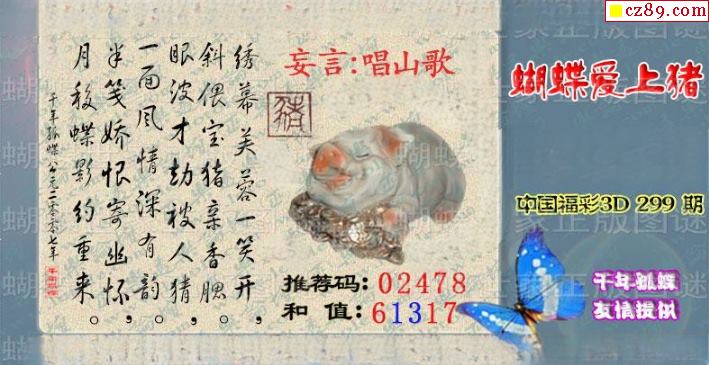 cz89.com
绣幕芙蓉一笑开，
斜偎宝猪亲香腮。
眼波才动被人猜，
一面风情深有韵。
半笺娇恨寄幽怀，
月移蝶影约重来。
千年孤蝶 公元二零零七年
妄言:唱山歌
猪
推荐码: 02478
和 值: 61317
蝴蝶爱上猪
中国福彩3D 299 期
千年孤蝶
友情提供